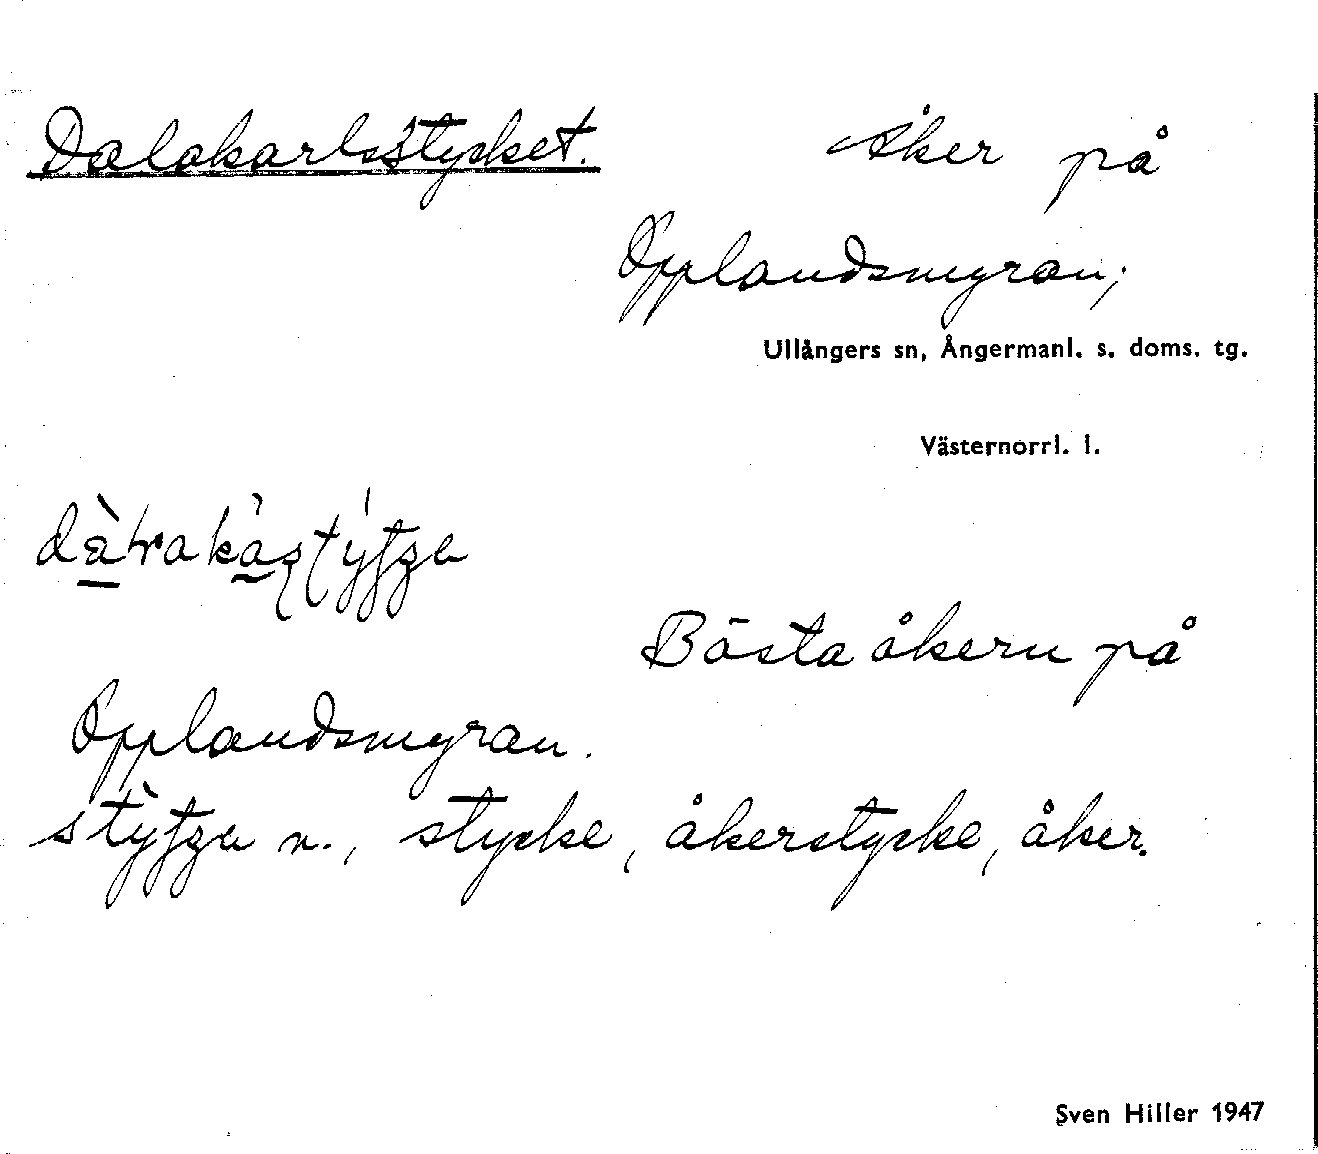 Dalakarlsstycket.
Åker på
Opplandsmyran;
Ullångers sn, Ångermanl. s. doms. tg.
Västernorrl. l.
Bästa åkern på
Opplandsmyran.
n., stycke, åkerstycke, åker.
Sven Hiller 1947